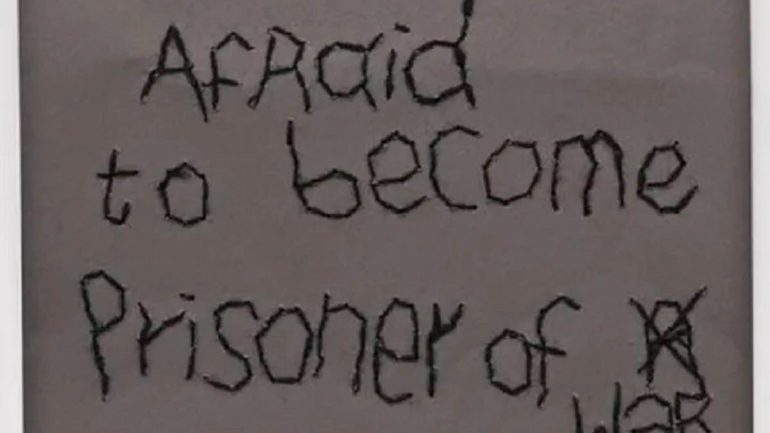 AfRaid
to become
Prisoner of
WaR